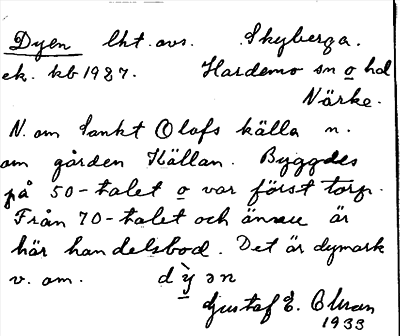 Dyen lht. avs. Skyberga.
ek. kb 1987. Hardemo sn o hd
Närke.
N. om Sankt Olofs källa n.
om gården Källan. Byggdes
på 50-talet o var först torp.
Från 70-talet och ännu är
här handelsbod. Det är dymark
v. om. dỳ̱ən
Gustaf E.
1933